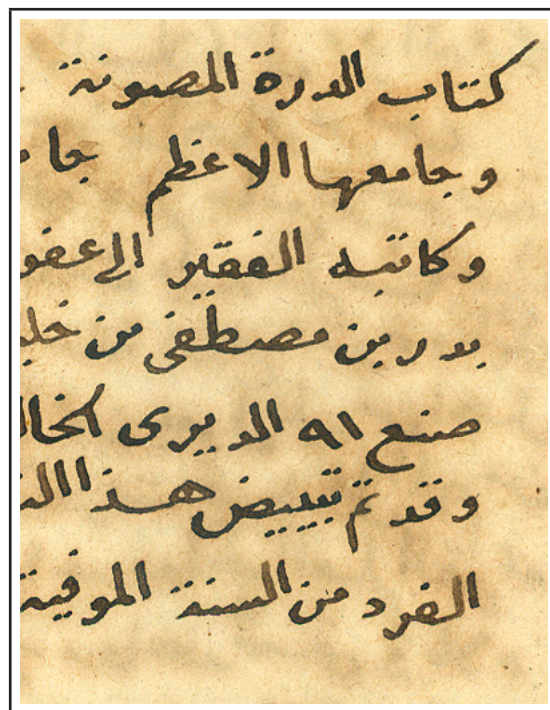 كتاب الدرة المصونة
وجامعها الاعظم جا
وكاتبه الفقير الى عفو
بدر بن مصطفى بن خليـ
صنع ٩١ الديرى الخا
وقد تم تبييض هذا
الفرد من السنة الموفية